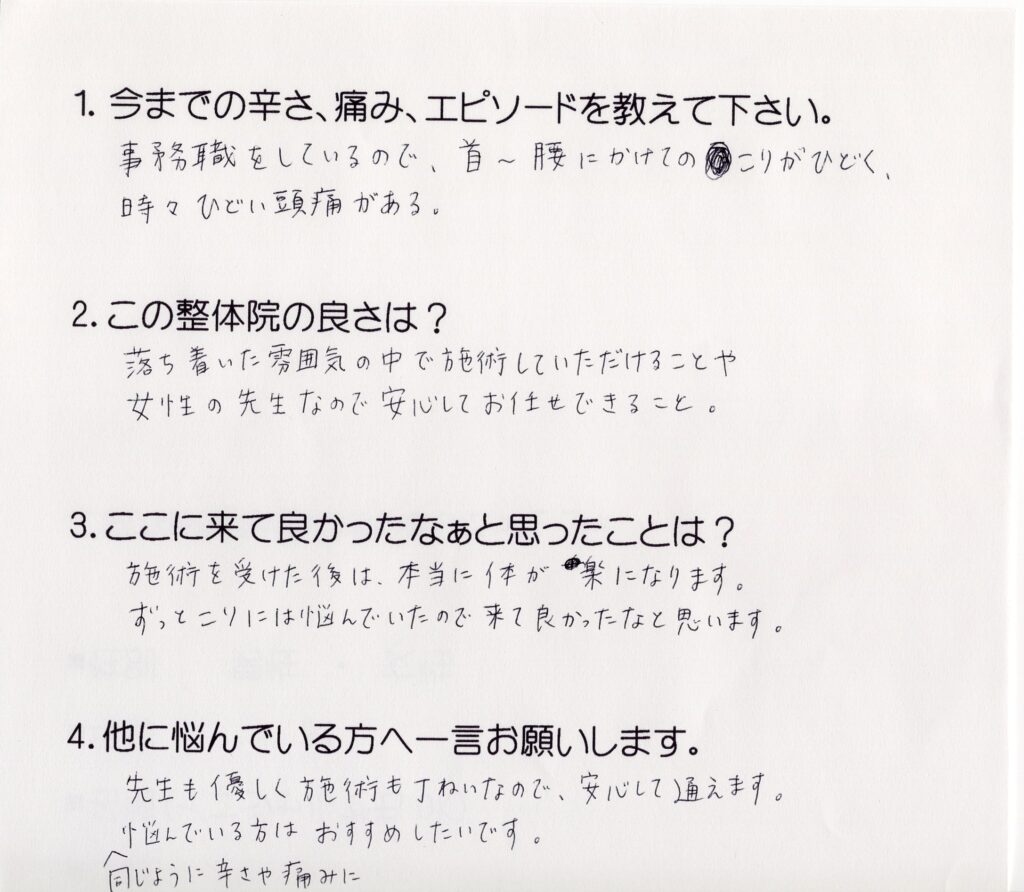 1. 今までの辛さ、痛み、エピソードを教えて下さい。
事務職をしているので、首〜腰にかけてのこりがひどく、
時々ひどい頭痛がある。
2. この整体院の良さは？
落ち着いた雰囲気の中で施術していただけることや
女性の先生なので安心してお任せできること。
3. ここに来て良かったなぁと思ったことは？
施術を受けた後は、本当に体が楽になります。
ずっとこりには悩んでいたので来て良かったなと思います。
4. 他に悩んでいる方へ一言お願いします。
先生も優しく施術も丁ねいなので、安心して通えます。
悩んでいる方はおすすめしたいです。
同じように辛さや痛みに